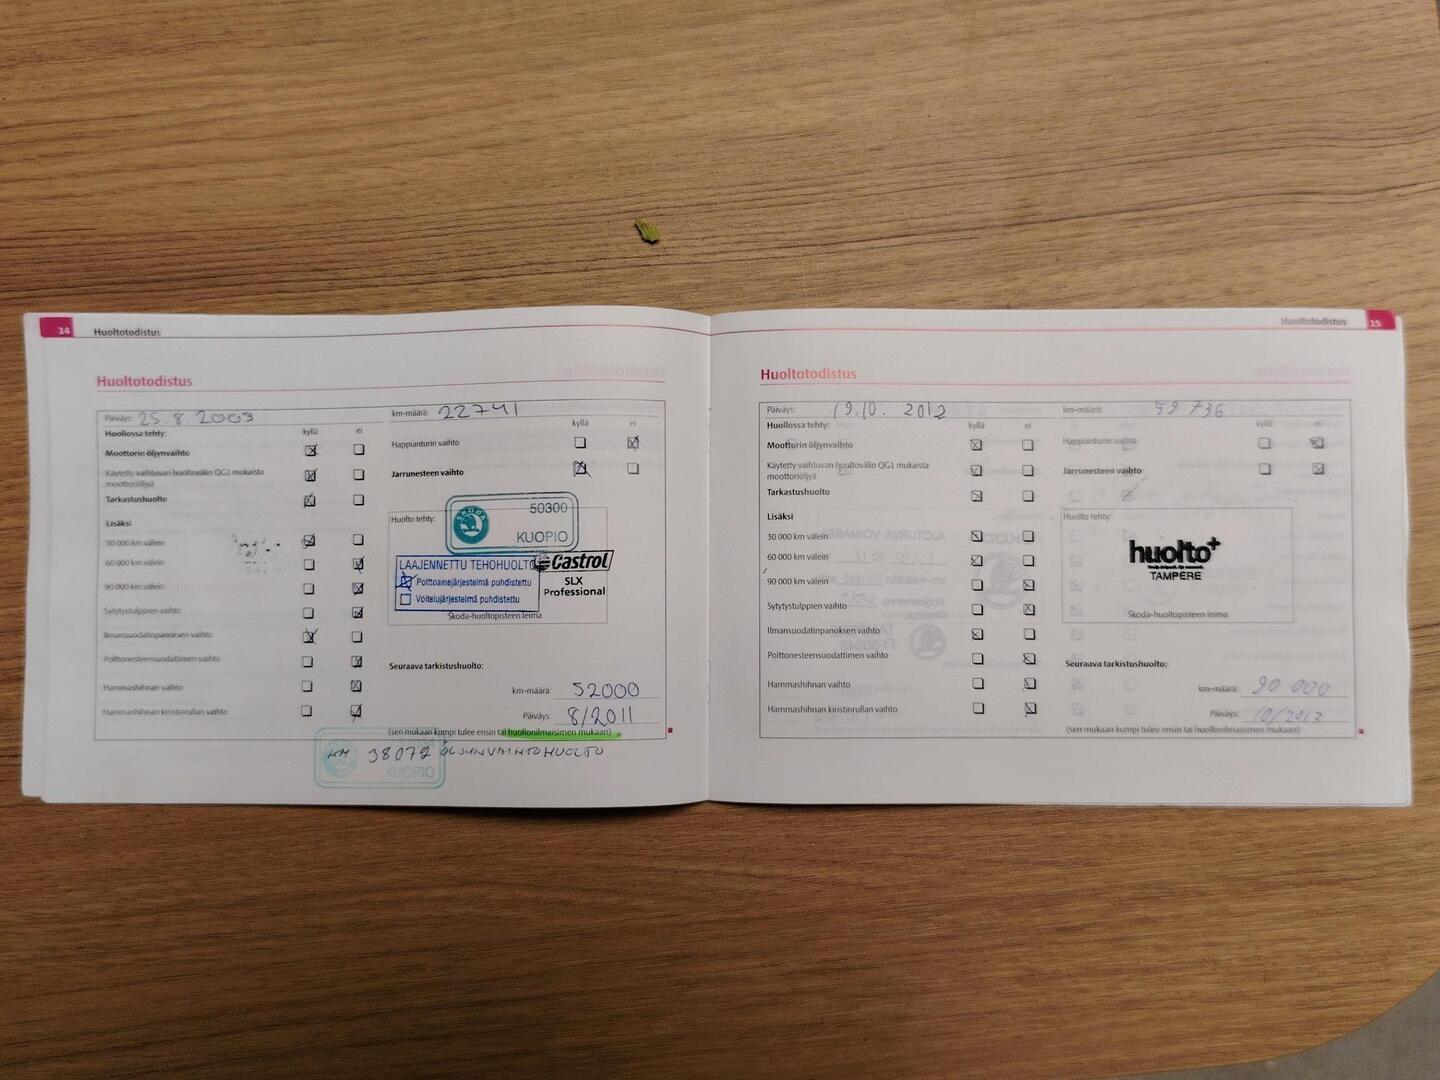 14 Huoltotodistus
Huoltotodistus
Päiväys: 25.8.2009
km-määrä: 22741
Huollossa tehty: kyllä ei
kyllä ei
Moottorin öljynvaihto
Happianturin vaihto
Käytetty vaihtuvan huoltovälin QG1 mukaista
moottoriöljyä
Jarrunesteen vaihto
Tarkastushuolto
Lisäksi
30 000 km välein
60 000 km välein
90 000 km välein
Sytytystulppien vaihto
Ilmansuodatinpanoksen vaihto
Polttonesteensuodattimen vaihto
Hammashihnan vaihto
Hammashihnan kiristinrullan vaihto
Huolto tehty:
SKODA
50300
KUOPIO
LAAJENNETTU TEHOHUOLTO
Polttoainejärjestelmä puhdistettu
Voitelujärjestelmä puhdistettu
Castrol
SLX
Professional
Škoda-huoltopisteen leima
Seuraava tarkistushuolto:
km-määrä: 52000
Päiväys: 8/2011
(sen mukaan kumpi tulee ensin tai huollonilmaisimen mukaan)
KM 38072 ÖLJYNVAIHTOHUOLTO
KUOPIO
Huoltotodistus 15
Huoltotodistus
Päiväys: 19.10. 2012
km-määrä: 59 736
Huollossa tehty: kyllä ei
kyllä ei
Moottorin öljynvaihto
Happianturin vaihto
Käytetty vaihtuvan huoltovälin QG1 mukaista
moottoriöljyä
Jarrunesteen vaihto
Tarkastushuolto
Lisäksi
30 000 km välein
60 000 km välein
90 000 km välein
Sytytystulppien vaihto
Ilmansuodatinpanoksen vaihto
Polttonesteensuodattimen vaihto
Hammashihnan vaihto
Hammashihnan kiristinrullan vaihto
Huolto tehty:
huolto+
TAMPERE
Škoda-huoltopisteen leima
Seuraava tarkistushuolto:
km-määrä: 90 000
Päiväys: 10/2013
(sen mukaan kumpi tulee ensin tai huollonilmaisimen mukaan)